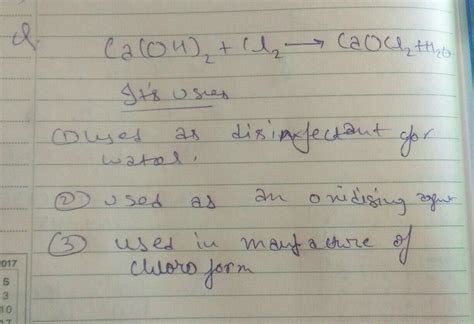 Ca(OH)₂ + Cl₂ → CaOCl₂ + H₂O
It's uses
① used as disinfectant for
water.
② used as an oxidising agent
③ used in manfacture of
chloroform
2017
S
3
10
17